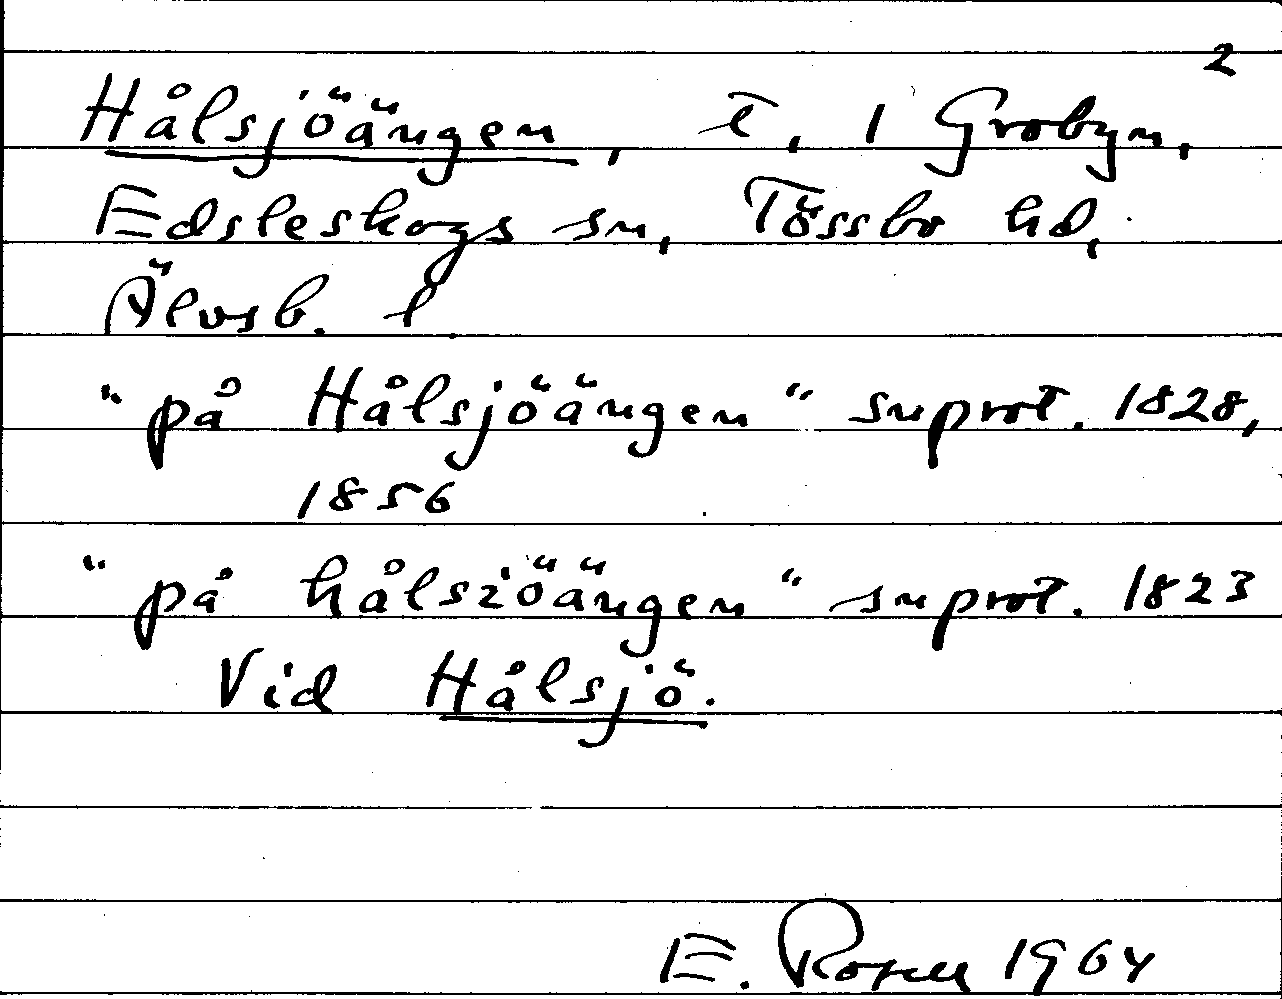 2
Hålsjöängen, t. 1 Grobyn,
Edsleskogs sn, Tössbo hd,
Älvsb. l
"på Hålsjöängen" snprot. 1828,
1856
"på hålsiöängen" snprot. 1823
Vid Hålsjö.
E. Rosell 1964